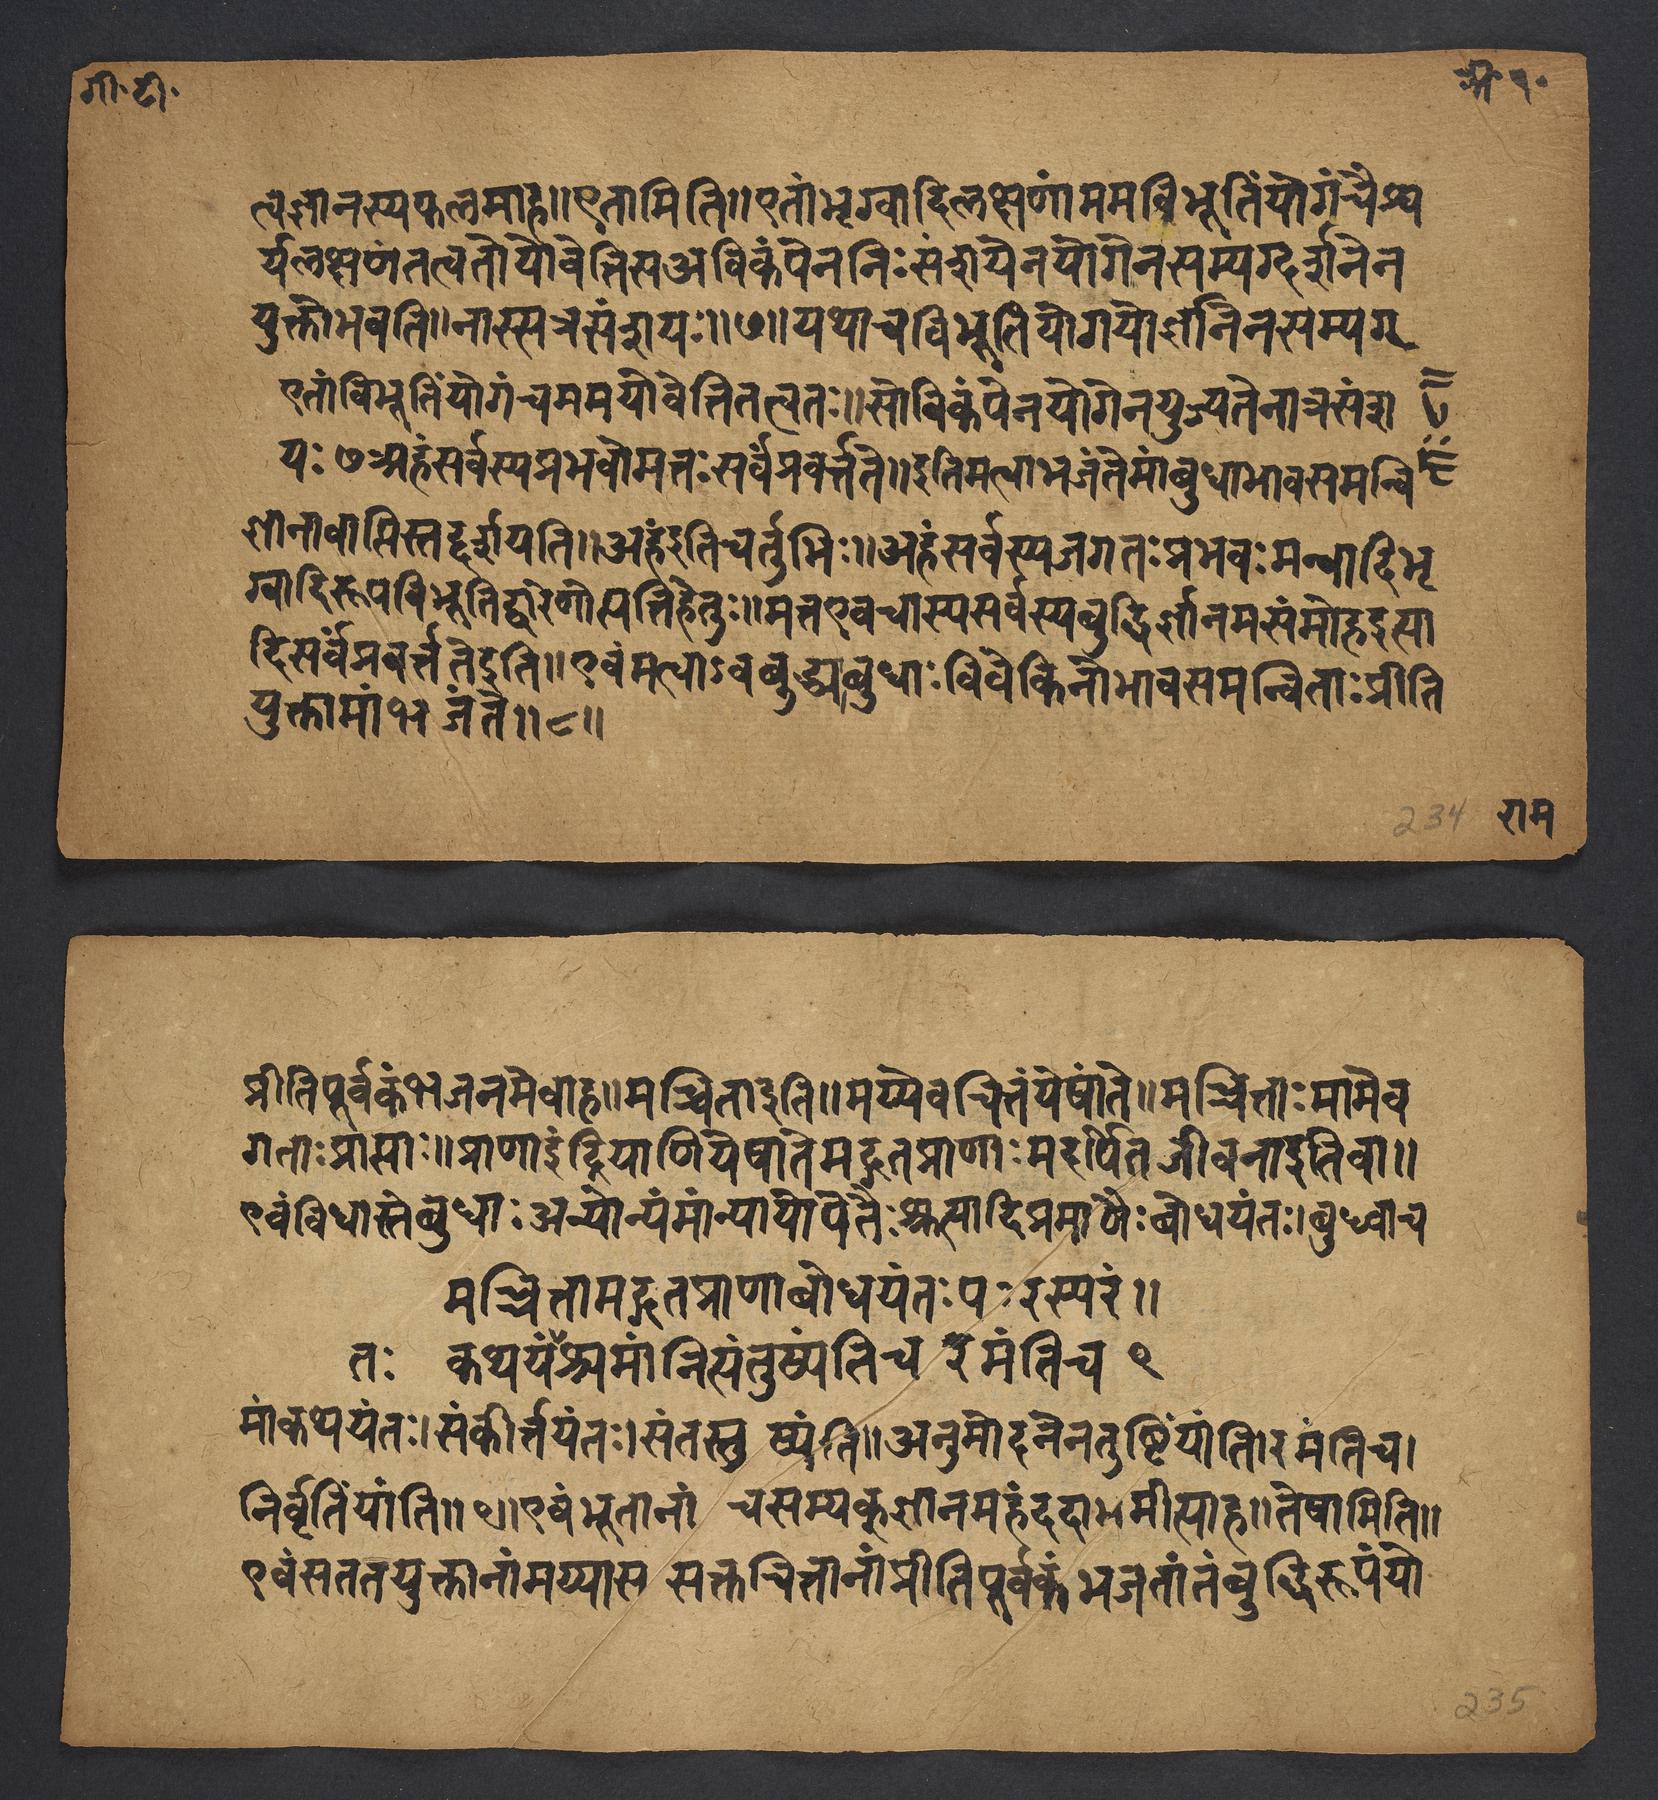 गी॰ टी॰
अ॰ १॰
त्वज्ञानस्यफलमाह॥एतामिति॥एतांभृग्वादिलक्षणांममविभूतिंयोगंचैश्व
र्यलक्षणंतत्वतोयोवेत्तिसअविकंपेननिःसंशयेनयोगेनसम्यग्दर्शनेन
युक्तोभवति॥नास्त्यत्रसंशयः॥७॥यथाचविभूतियोगयोर्ज्ञानेनसम्यग्
एतांविभूतिंयोगंचममयोवेत्तितत्वतः॥सोविकंपेनयोगेनयुज्यतेनात्रसंश
यः७अहंसर्वस्यप्रभवोमत्तःसर्वंप्रवर्त्तते॥इतिमत्वाभजंतेमांबुधाभावसमन्वि
ज्ञानावाप्तिस्तद्दर्शयति॥अहंइतिचर्तुभिः॥अहंसर्वस्यजगतःप्रभवःमन्वादिभृ
ग्वादिरूपविभूतिद्वारेणोत्पत्तिहेतुः॥मत्तएवचास्यसर्वस्यबुद्धिर्ज्ञानमसंमोहइत्या
दिसर्वंप्रवर्त्ततेइति॥एवंमत्वाऽवबुद्ध्यबुधाःविवेकिनोभावसमन्विताःप्रीति
युक्तामांभजंते॥८॥
234
राम
प्रीतिपूर्वकंभजनमेवाह॥मच्चित्ताइति॥मय्येवचित्तंयेषांते॥मच्चित्ताःमामेव
गताःप्राप्ताः॥प्राणाइंद्रियाणियेषांतेमद्गतप्राणाःमदर्पितजीवनाइतिवा॥
एवंविधास्तेबुधाःअन्योन्यंमांन्यायोपेतैःश्रुत्यादिप्रमाणैःबोधयंतः।बुध्वाच
मच्चित्तामद्गतप्राणाबोधयंतःपःरस्परं॥
तः कथयंश्चमांनित्यंतुष्यंतिचरमंतिच९
मांकथयंतः।संकीर्त्तयंतः।संतस्तुष्यंति॥अनुमोदनेनतुष्टिंयांति।रमंतिच।
निर्वृतिंयांति॥९॥एवंभूतानांचसम्यक्ज्ञानमहंददामीत्याह॥तेषामिति॥
एवंसततयुक्तानांमय्यासक्तचित्तानांप्रीतिपूर्वकंभजतांतंबुद्धिरूपंयो
235